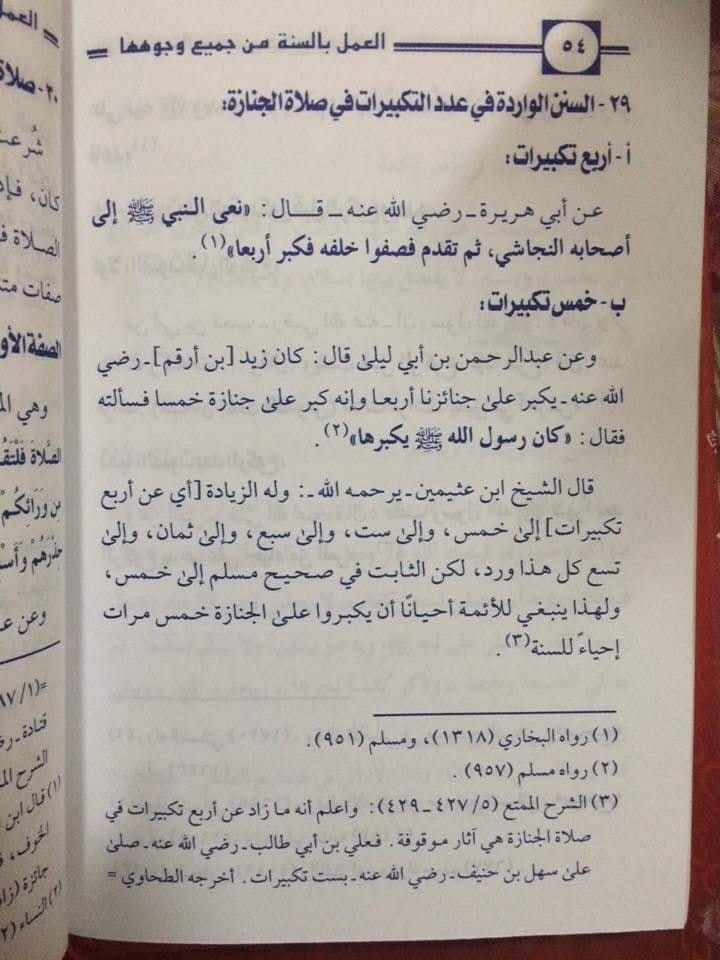 ٥٤
العمل بالسنة من جميع وجوهها
٢٩ - السنن الواردة في عدد التكبيرات في صلاة الجنازة:
أ - أربع تكبيرات:
عن أبي هريرة - رضي الله عنه - قال: «نعى النبي ﷺ إلى
أصحابه النجاشي، ثم تقدم فصفوا خلفه فكبر أربعا»(١).
ب - خمس تكبيرات:
وعن عبدالرحمن بن أبي ليلىٰ قال: كان زيد [بن أرقم] - رضي
الله عنه - يكبر علىٰ جنائزنا أربعا وإنه كبر علىٰ جنازة خمسا فسألته
فقال: «كان رسول الله ﷺ يكبرها»(٢).
قال الشيخ ابن عثيمين - يرحمه الله -: وله الزيادة [أي عن أربع
تكبيرات] إلىٰ خمس، وإلىٰ ست، وإلىٰ سبع، وإلىٰ ثمان، وإلىٰ
تسع كل هذا ورد، لكن الثابت في صحيح مسلم إلىٰ خمس،
ولهذا ينبغي للأئمة أحيانًا أن يكبروا علىٰ الجنازة خمس مرات
إحياءً للسنة(٣).
(١) رواه البخاري (١٣١٨)، ومسلم (٩٥١).
(٢) رواه مسلم (٩٥٧).
(٣) الشرح الممتع (٥/ ٤٢٧ - ٤٢٩): واعلم أنه ما زاد عن أربع تكبيرات في
صلاة الجنازة هي آثار موقوفة. فعلي بن أبي طالب - رضي الله عنه - صلىٰ
علىٰ سهل بن حنيف - رضي الله عنه - بست تكبيرات. أخرجه الطحاوي =
العمل
٣٠ - صلاة
شُرعت
كان، فإذ
الصلاة ف
صفات مت
الصفة الأو
وهي الم
الصَّلَاةَ فَلْتَقُ
مِن وَرَائِكُمْ
حِذْرَهُمْ وَأَسْ
وعن عـ
قتادة - رض
الشرح الم
(١) قال ابن
الخوف، ف
جائزة (زا
(٢) النساء (٢